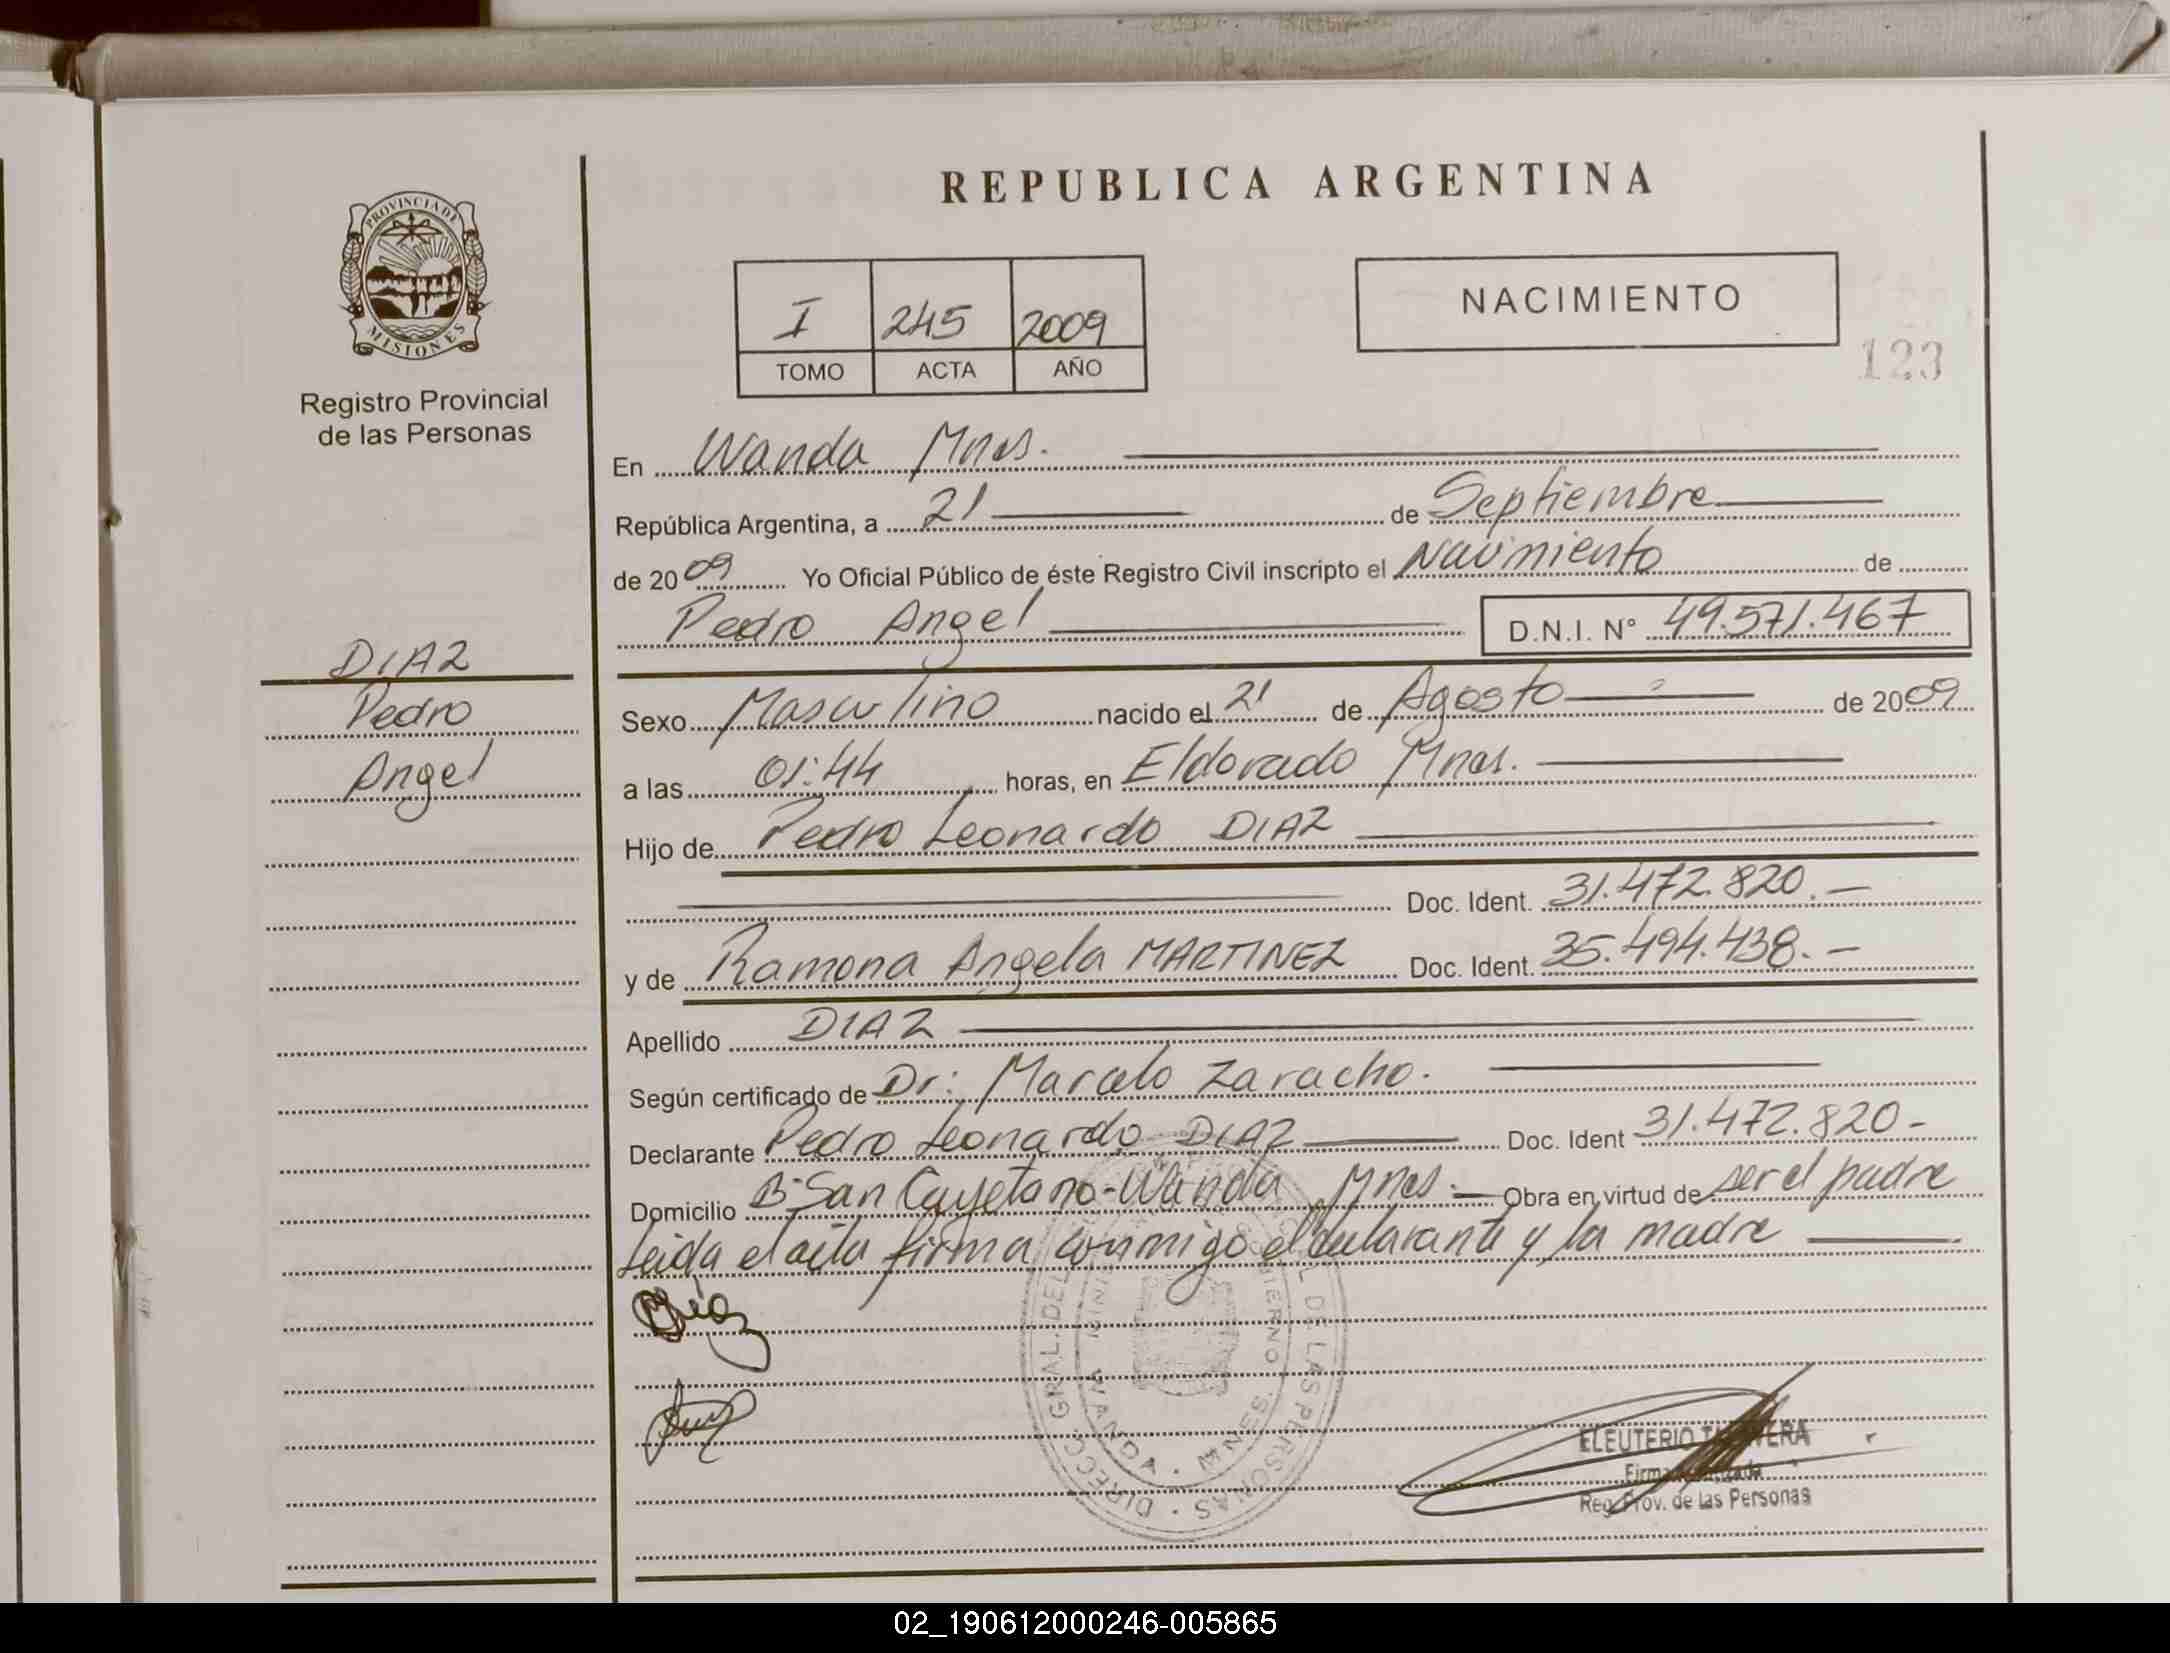 REPUBLICA ARGENTINA
PROVINCIA DE
MISIONES
Registro Provincial
de las Personas
I 245 2009
TOMO ACTA AÑO
NACIMIENTO
123
En Wanda Mnes.
República Argentina, a 21 de Septiembre
de 2009 Yo Oficial Público de éste Registro Civil inscripto el Nacimiento de
Pedro Angel D.N.I. N° 49.571.467
DIAZ
Pedro
Angel
Sexo Masculino nacido el 21 de Agosto de 2009
a las 01:44 horas, en Eldorado Mnes.
Hijo de Pedro Leonardo DIAZ
Doc. Ident. 31.472.820.-
y de Ramona Angela MARTINEZ Doc. Ident. 35.494.438.-
Apellido DIAZ
Según certificado de Dr: Marcelo Zaracho.
Declarante Pedro Leonardo DIAZ Doc. Ident 31.472.820-
Domicilio B° San Cayetano-Wanda Mnes.- Obra en virtud de ser el padre
Leida el acta firma conmigo el declarante y la madre
Diaz
DIRECC. GRAL. DEL DE LAS PERSONAS
GOBIERNO
WANDA · MNES.
ELEUTERIO
Reg. Prov. de las Personas
02_190612000246-005865